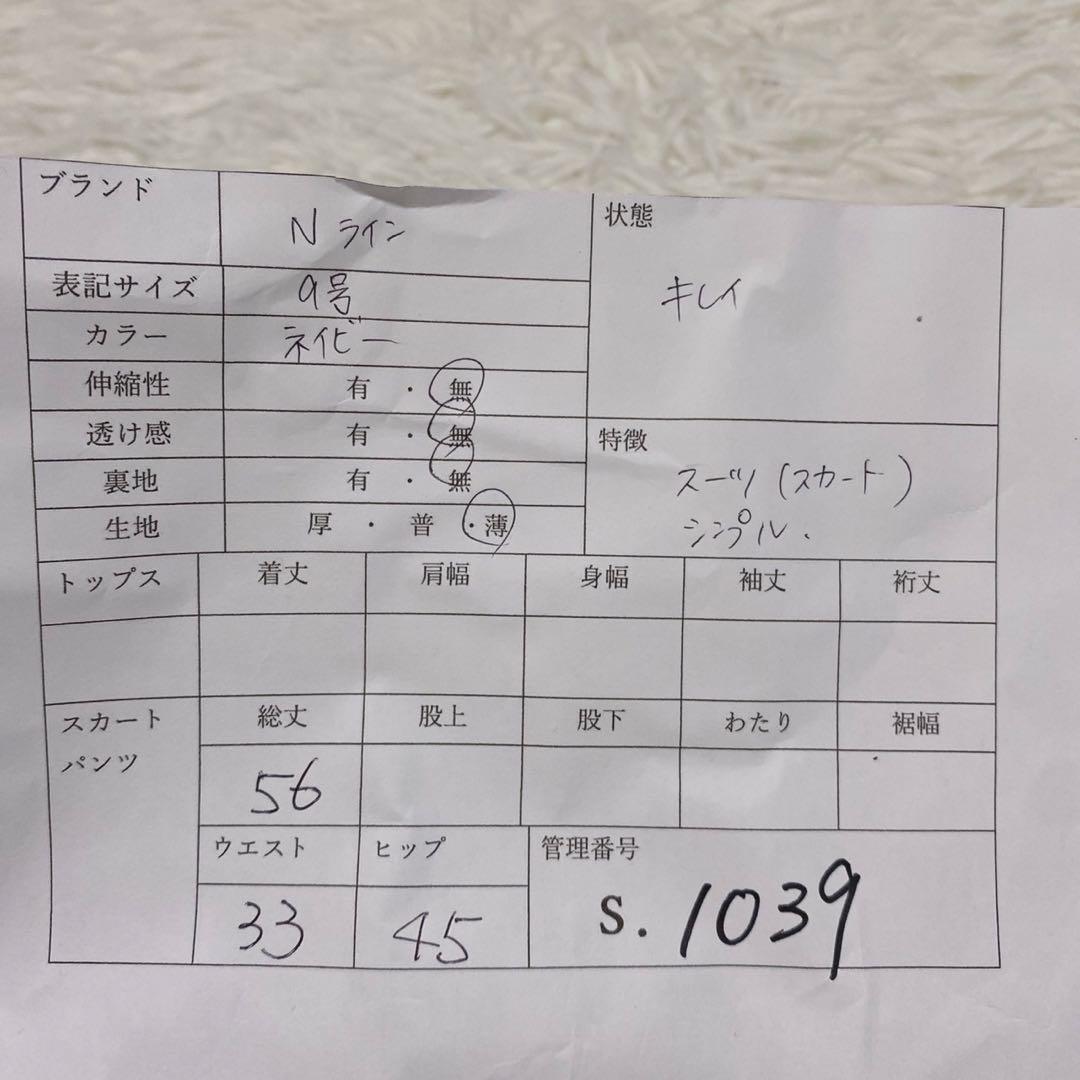 ブランド
N ライン
表記サイズ
9号
カラー
ネイビー
伸縮性
有 ・ 無
透け感
有 ・ 無
裏地
有 ・ 無
生地
厚 ・ 普 ・ 薄
状態
キレイ
特徴
スーツ (スカート)
シンプル.
トップス 着丈 肩幅 身幅 袖丈 裄丈
スカート 総丈 股上 股下 わたり 裾幅
パンツ
56
ウエスト ヒップ 管理番号
33 45 S. 1039